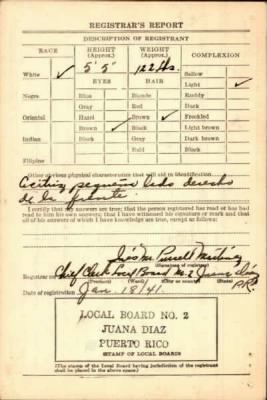 REGISTRAR'S REPORT
DESCRIPTION OF REGISTRANT
RACE HEIGHT (Approx.) WEIGHT (Approx.) COMPLEXION
White ✓ 5' 5" 122 lbs. Sallow
EYES HAIR Light ✓
Negro Blue Blonde Ruddy
Gray Red Dark
Oriental Hazel Brown ✓ Freckled
Brown ✓ Black Light brown
Indian Black Gray Dark brown
Bald Black
Filipino
Other obvious physical characteristics that will aid in identification
Cicatriz pequeña lado derecho
de la
I certify that my answers are true; that the person registered has read or has had
read to him his own answers; that I have witnessed his signature or mark and that
all of his answers of which I have knowledge are true, except as follows:
(Signature of registrar)
Registrar for Chief Clerk Local Board No. 2 Juana Díaz
(Precinct) (Ward) (City or county) (State)
P.R.
Date of registration Jan. 18/41
LOCAL BOARD NO. 2
JUANA DIAZ
PUERTO RICO
(STAMP OF LOCAL BOARD)
(The stamp of the Local Board having jurisdiction of the registrant
shall be placed in the above space.)